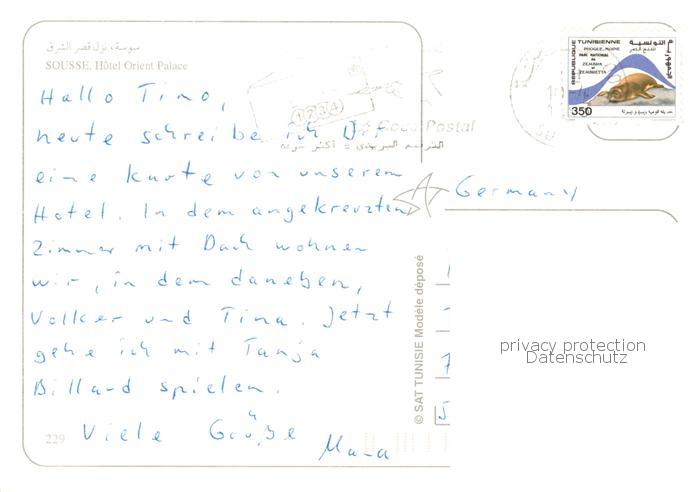 سوسة، نزل قصر الشرق
SOUSSE, Hôtel Orient Palace
Hallo Timo,
heute schreibe ich Dir
eine Karte von unserem
Hotel. In dem angekreuzten
Zimmer mit Dach wohnen
wir, in dem daneben,
Volker und Tina. Jetzt
gehe ich mit Tanja
Billard spielen.
Viele Grüße
229
© SAT TUNISIE Modèle déposé
1234
Code Postal
الترقيم البريدي = أكثر سرعة
REPUBLIQUE TUNISIENNE
PHOQUE MOINE
PARC NATIONAL
de
ZEMBRA
et
ZEMBRETTA
350
Germany
privacy protection
Datenschutz